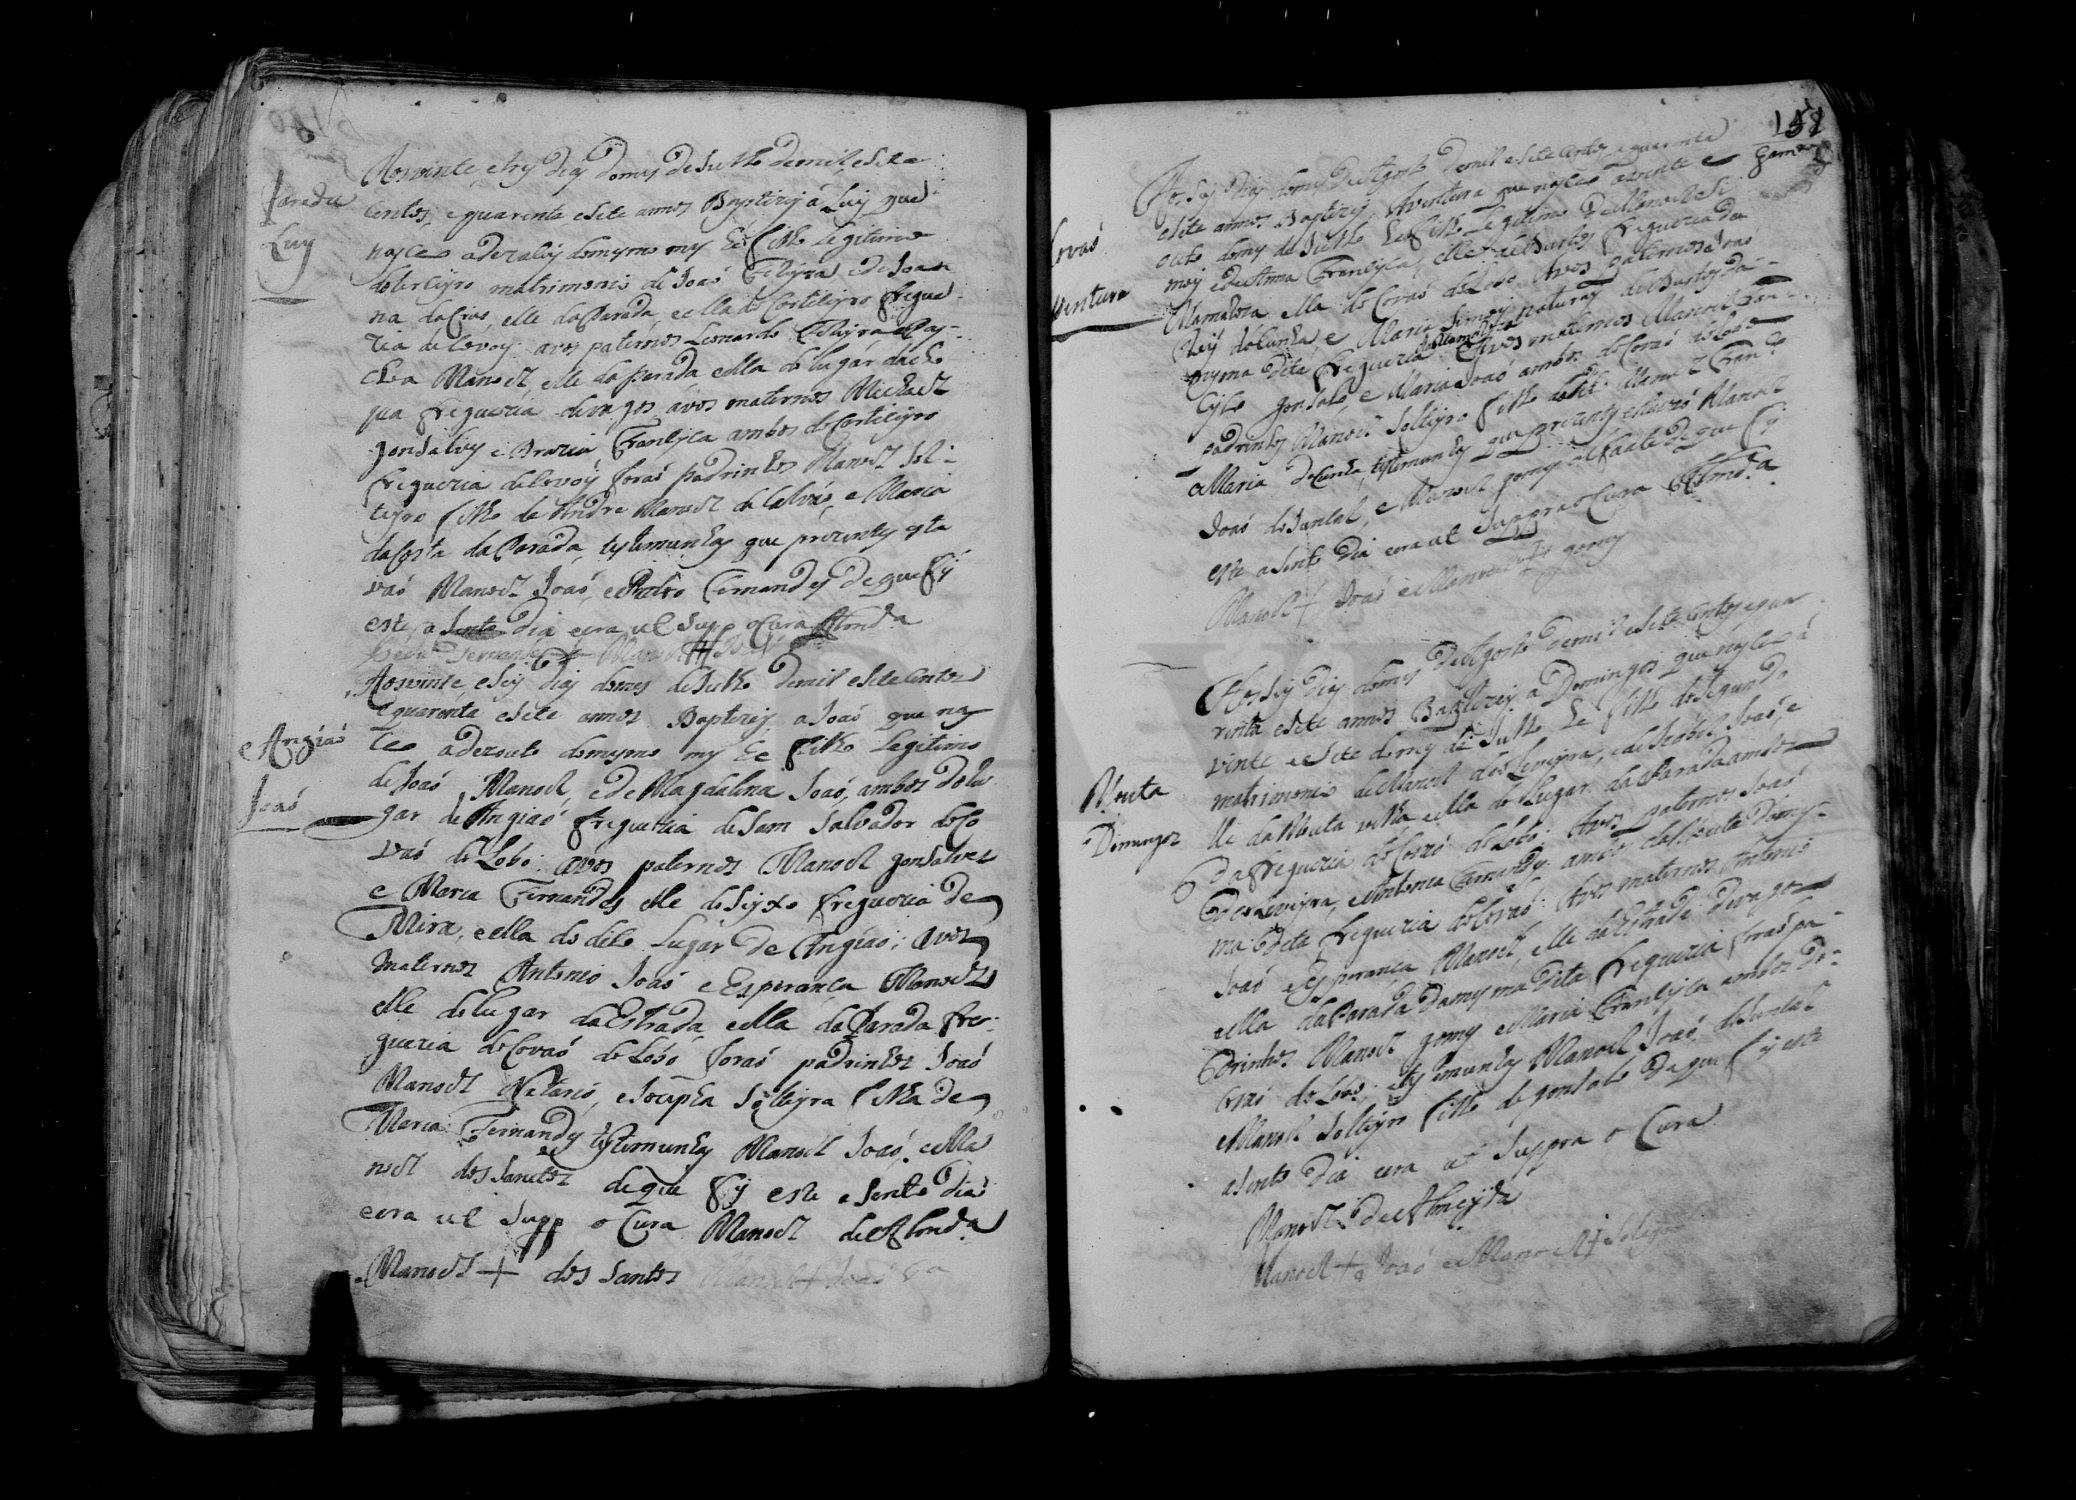 Parada
Luis
Aos vinte, e trez dias do mes de Julho de mil, e sete
centos, e quarenta e sete annos Baptizey á Luiz que
nasceo a dezaseis do mesmo mes he filho legitimo
do terceyro matrimonio de Joaõ Ferreyra e de Joan
na da Cruz, elle da Parada, e ella do Corticeyro fregue
zia de Covoẽs avos paternos Leonardo Ferreyra e Pas-
choa Manoel, elle da Parada e ella do lugar da
freguezia de vagos avos maternos Michael
Gonsalves e Brazia Francisca ambos do Corticeyro
freguezia de Covoẽs foraõ padrinhos Manoel Sol-
teyro filho de Andre Manoel da Calvaõ, e Maria
da Costa da Parada, testemunhas que prezentes esta
vaõ Manoel Joaõ, e Pedro Fernandes de que fiz
este asento dia e era ut supp o Cura Almda
Pedro Fernandes + Manoel + Joaõ
Angiaõ
Joaõ
Aos vinte, e seis dias do mes de Julho de mil e sete centos
e quarenta e sete annos Baptizey a Joaõ que nas
ceo a dezouto do mesmo mes he filho legitimo
de Joaõ Manoel e de Magdalena Joaõ, ambos do lu
gar de Angiaõ freguezia de Sam Salvador do Co
vaõ do Lobo: avos paternos Manoel gonsalves
e Maria Fernandes elle do Seyxo freguezia de
Mira, e ella do dito Lugar de Angiaõ; avos
maternos Antonio Joaõ e Esperança Manoel
elle do lugar da Estrada e ella da Parada fre-
guezia do Covaõ do Lobo foraõ padrinhos Joaõ
Manoel Netario, e Jozepha Solteyra filha de
Maria Fernandes testemunhas Manoel Joaõ, e Ma
noel dos Santos de que fiz este asento dia
e era ut supp o Cura Manoel de Almda
Manoel + dos Santos Manoel + Joaõ
151
Covaõ
Ventura
Aos seis dias do mes de Agosto de mil e sete centos, e quarenta
e sete annos Baptizey, Aventura que nasceo a vinte e
outo do mes de Julho he filho legitimo de Manoel Si
moes e de Anna Francisca, elle de Bustos freguezia da
Mamaroza ella do Covaõ do Lobo Avos paternos Joaõ
e Maria Simoes naturaes de Bustos da
mesma dita freguezia Avos maternos Manoel Fran-
cisco gonsalo e Maria Joaõ ambos do Covaõ do Lobo
padrinhos Manoel Solteyro filho do dito Manoel Franco
e Maria da Cunha, testemunhas que prezentes estavaõ Manoel
Joaõ do Juncal, e Manoel gomes de que fiz
este asento dia e era ut suppra o Cura Almda
Manoel + Joaõ e Manoel + gomes
Mouta
Domingos
Aos seis dias do mes de Agosto de mil e sete centos e qua
renta e sete annos Baptizey a Domingos que nasceo á
vinte e sete do mes de Julho he filho do segundo
matrimonio de Manoel de Oliveyra, e de Izabel Joaõ, e
lle da Mouta velha e ella do Lugar da Parada ambos
da freguezia do Covaõ do Lobo: Avos paternos Joaõ
de Oliveyra, e Antonia Fernandes ambos da Mouta da mes-
ma dita freguezia do Covaõ: Avos maternos, Antonio
Joaõ e Esperança Manoel, elle da Estrada de vagos
e ella da Parada da mesma dita freguezia foraõ pa-
drinhos Manoel gomes e Maria Francisca ambos do
Covaõ do Lobo; testemunhas Manoel Joaõ do Juncal
e Manoel Solteyro filho de gonsalo de que fiz este
asento dia e era ut suppra o Cura
Manoel de Almeyda
Manoel + Joaõ e Manoel + Solteyro